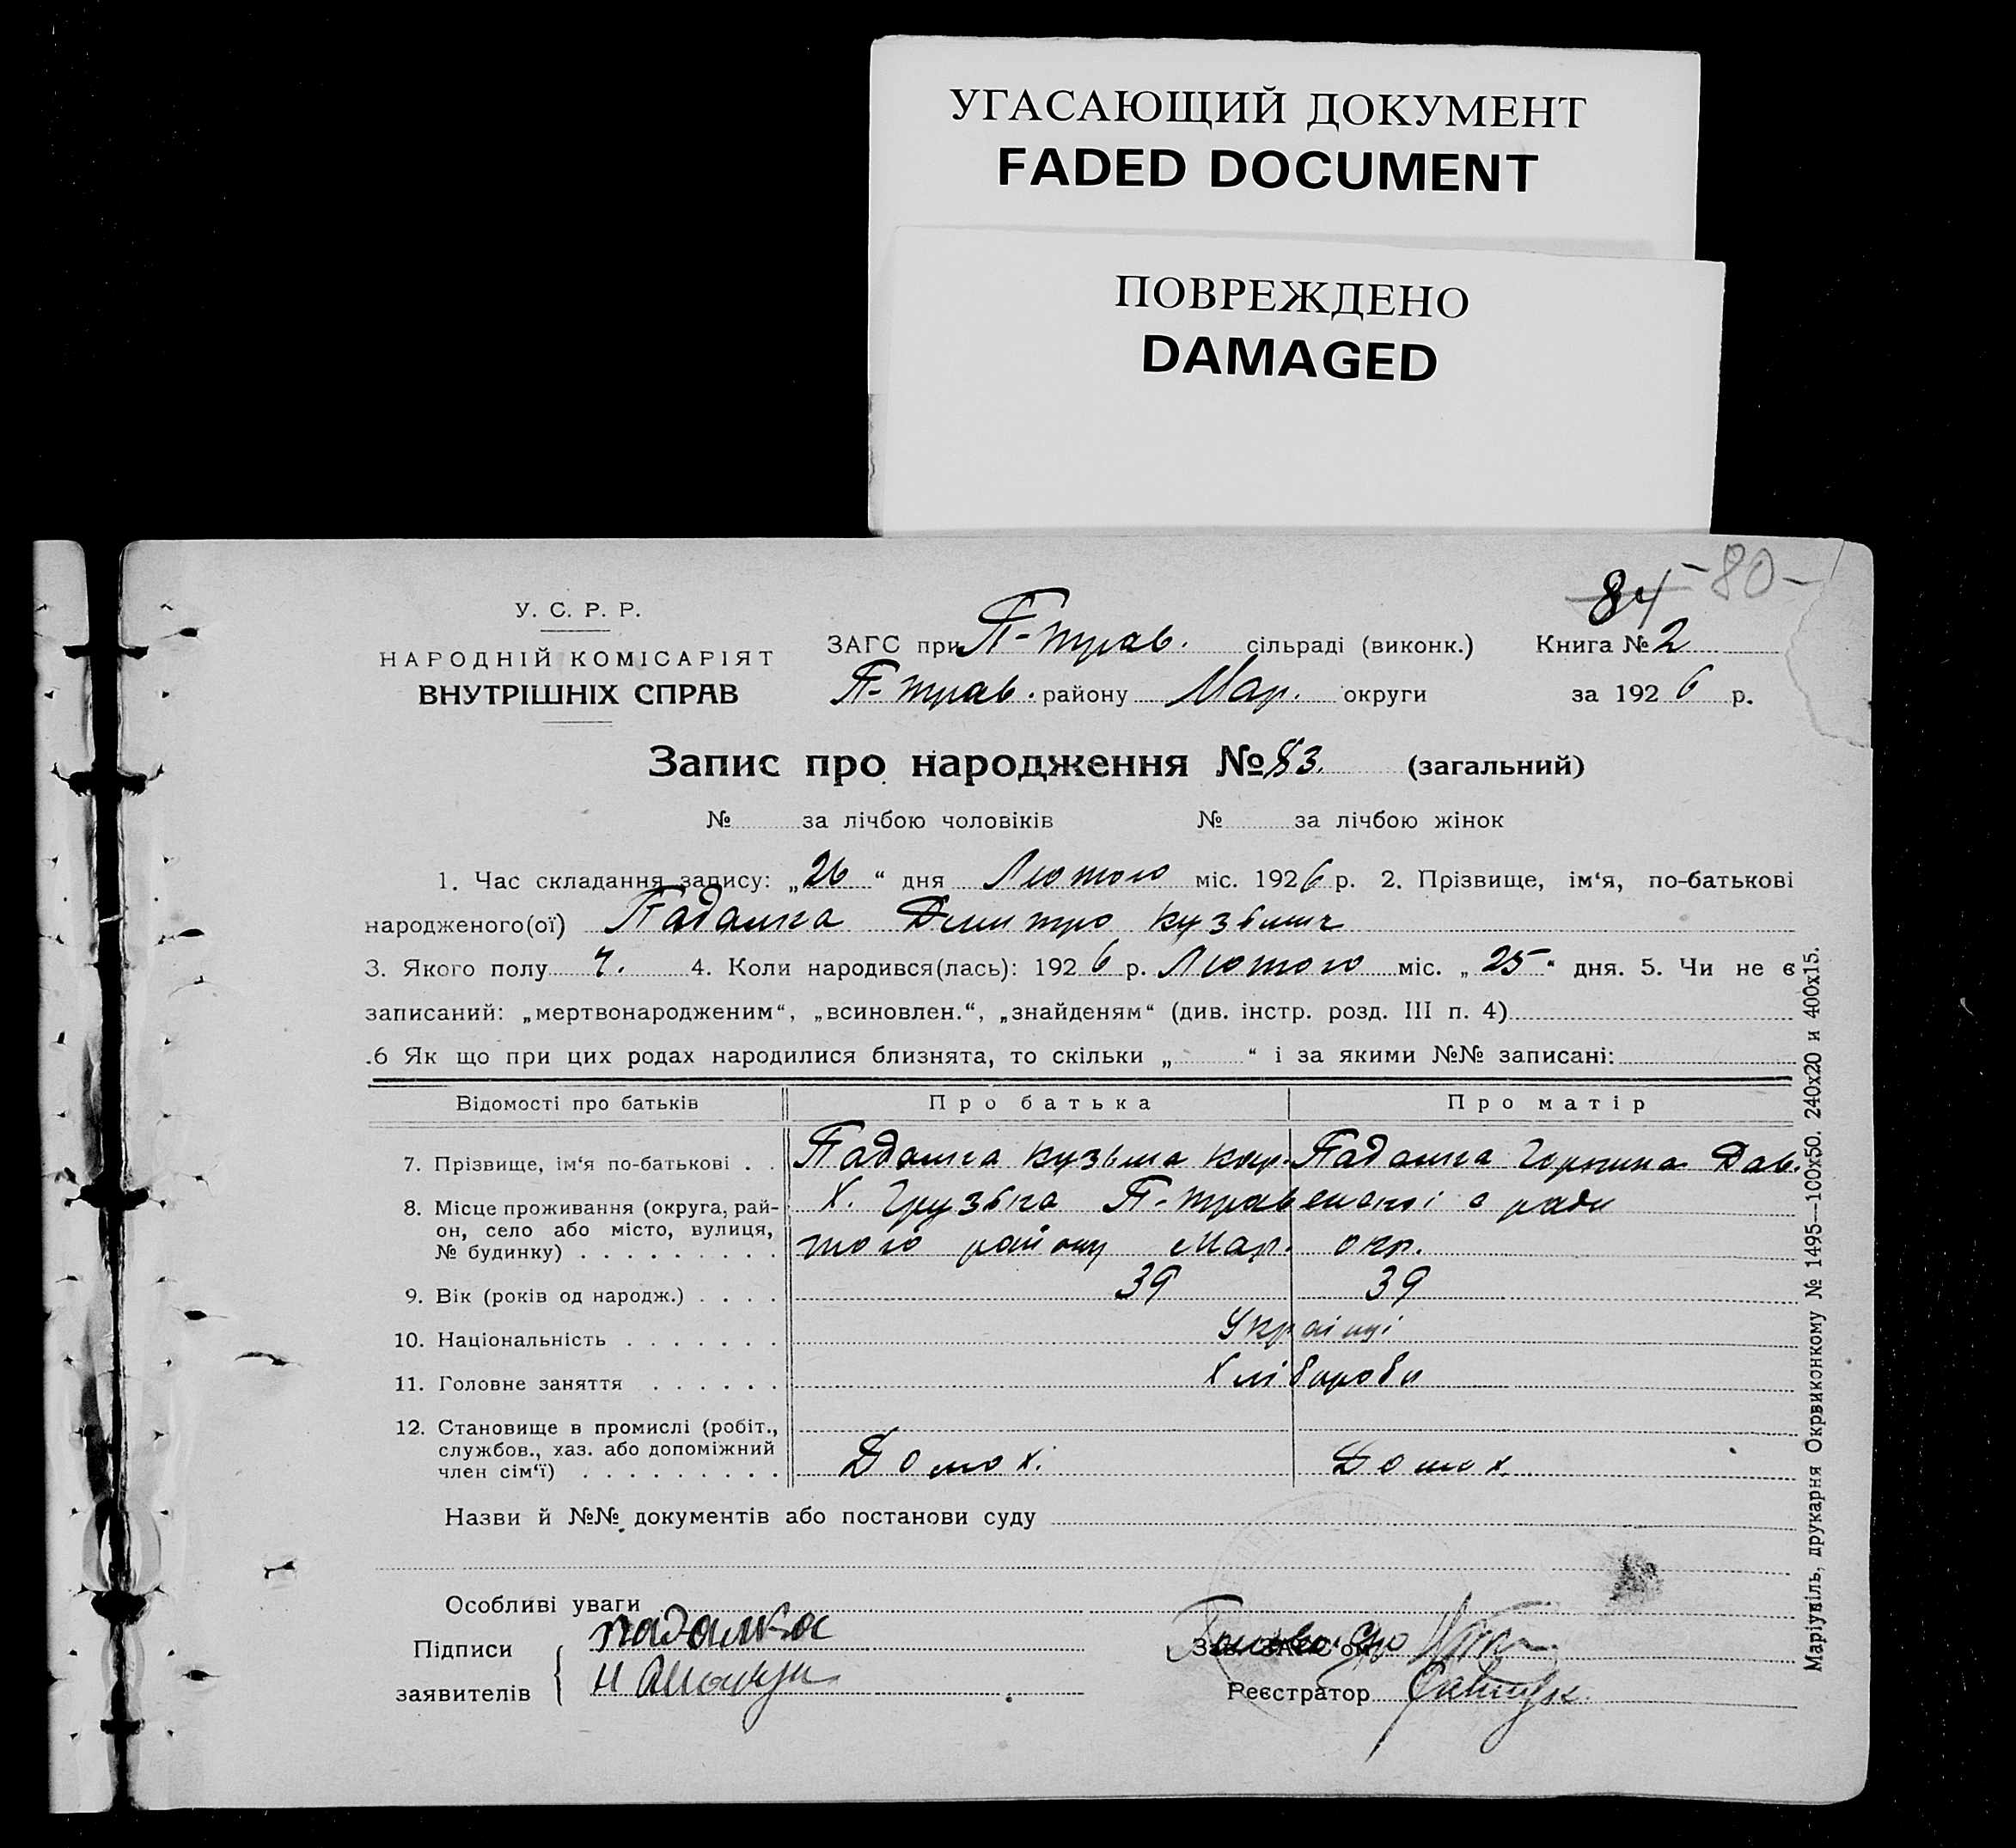 УГАСАЮЩИЙ ДОКУМЕНТ
FADED DOCUMENT
ПОВРЕЖДЕНО
DAMAGED
84 -80-
У. С. Р. Р.
НАРОДНІЙ КОМІСАРІЯТ
ВНУТРІШНІХ СПРАВ
ЗАГС при П-трав. сільраді (виконк.) Книга № 2
П-трав. району Мар. округи за 1926 р.
Запис про народження № 83. (загальний)
№ за лічбою чоловіків № за лічбою жінок
1. Час складання запису: „26“ дня Лютого міс. 1926 р. 2. Прізвище, ім‘я, по-батькові
народженого(ої) Падалка Дмитро Кузьмич
3. Якого полу ч. 4. Коли народився(лась): 1926 р. Лютого міс. „25“ дня. 5. Чи не є
записаний: „мертвонародженим“, „всиновлен.“, „знайденям“ (див. інстр. розд. III п. 4)
.6 Як що при цих родах народилися близнята, то скільки „ “ і за якими №№ записані:
Відомості про батьків Про батька Про матір
7. Прізвище, ім‘я по-батькові . . Падалка Кузьма Кир. Падалка Горпина Дав.
8. Місце проживання (округа, рай- Х. Грузька П-травенської с ради
он, село або місто, вулиця,
№ будинку) . . . . . . . . . того району Мар. окр.
9. Вік (років од народж.) . . . . 39 39
10. Національність . . . . . . . Українці
11. Головне заняття . . . . . . Хлібороби
12. Становище в промислі (робіт.,
службов., хаз. або допоміжний
член сім‘ї) . . . . . . . . . Домох. Домох.
Назви й №№ документів або постанови суду
Особливі уваги
Підписи падалка
заявителів
Зав. ЗАГС‘ом
Реєстратор
Маріупіль, друкарня Окрвиконкому № 1495—100х50. 240х20 и 400х15.